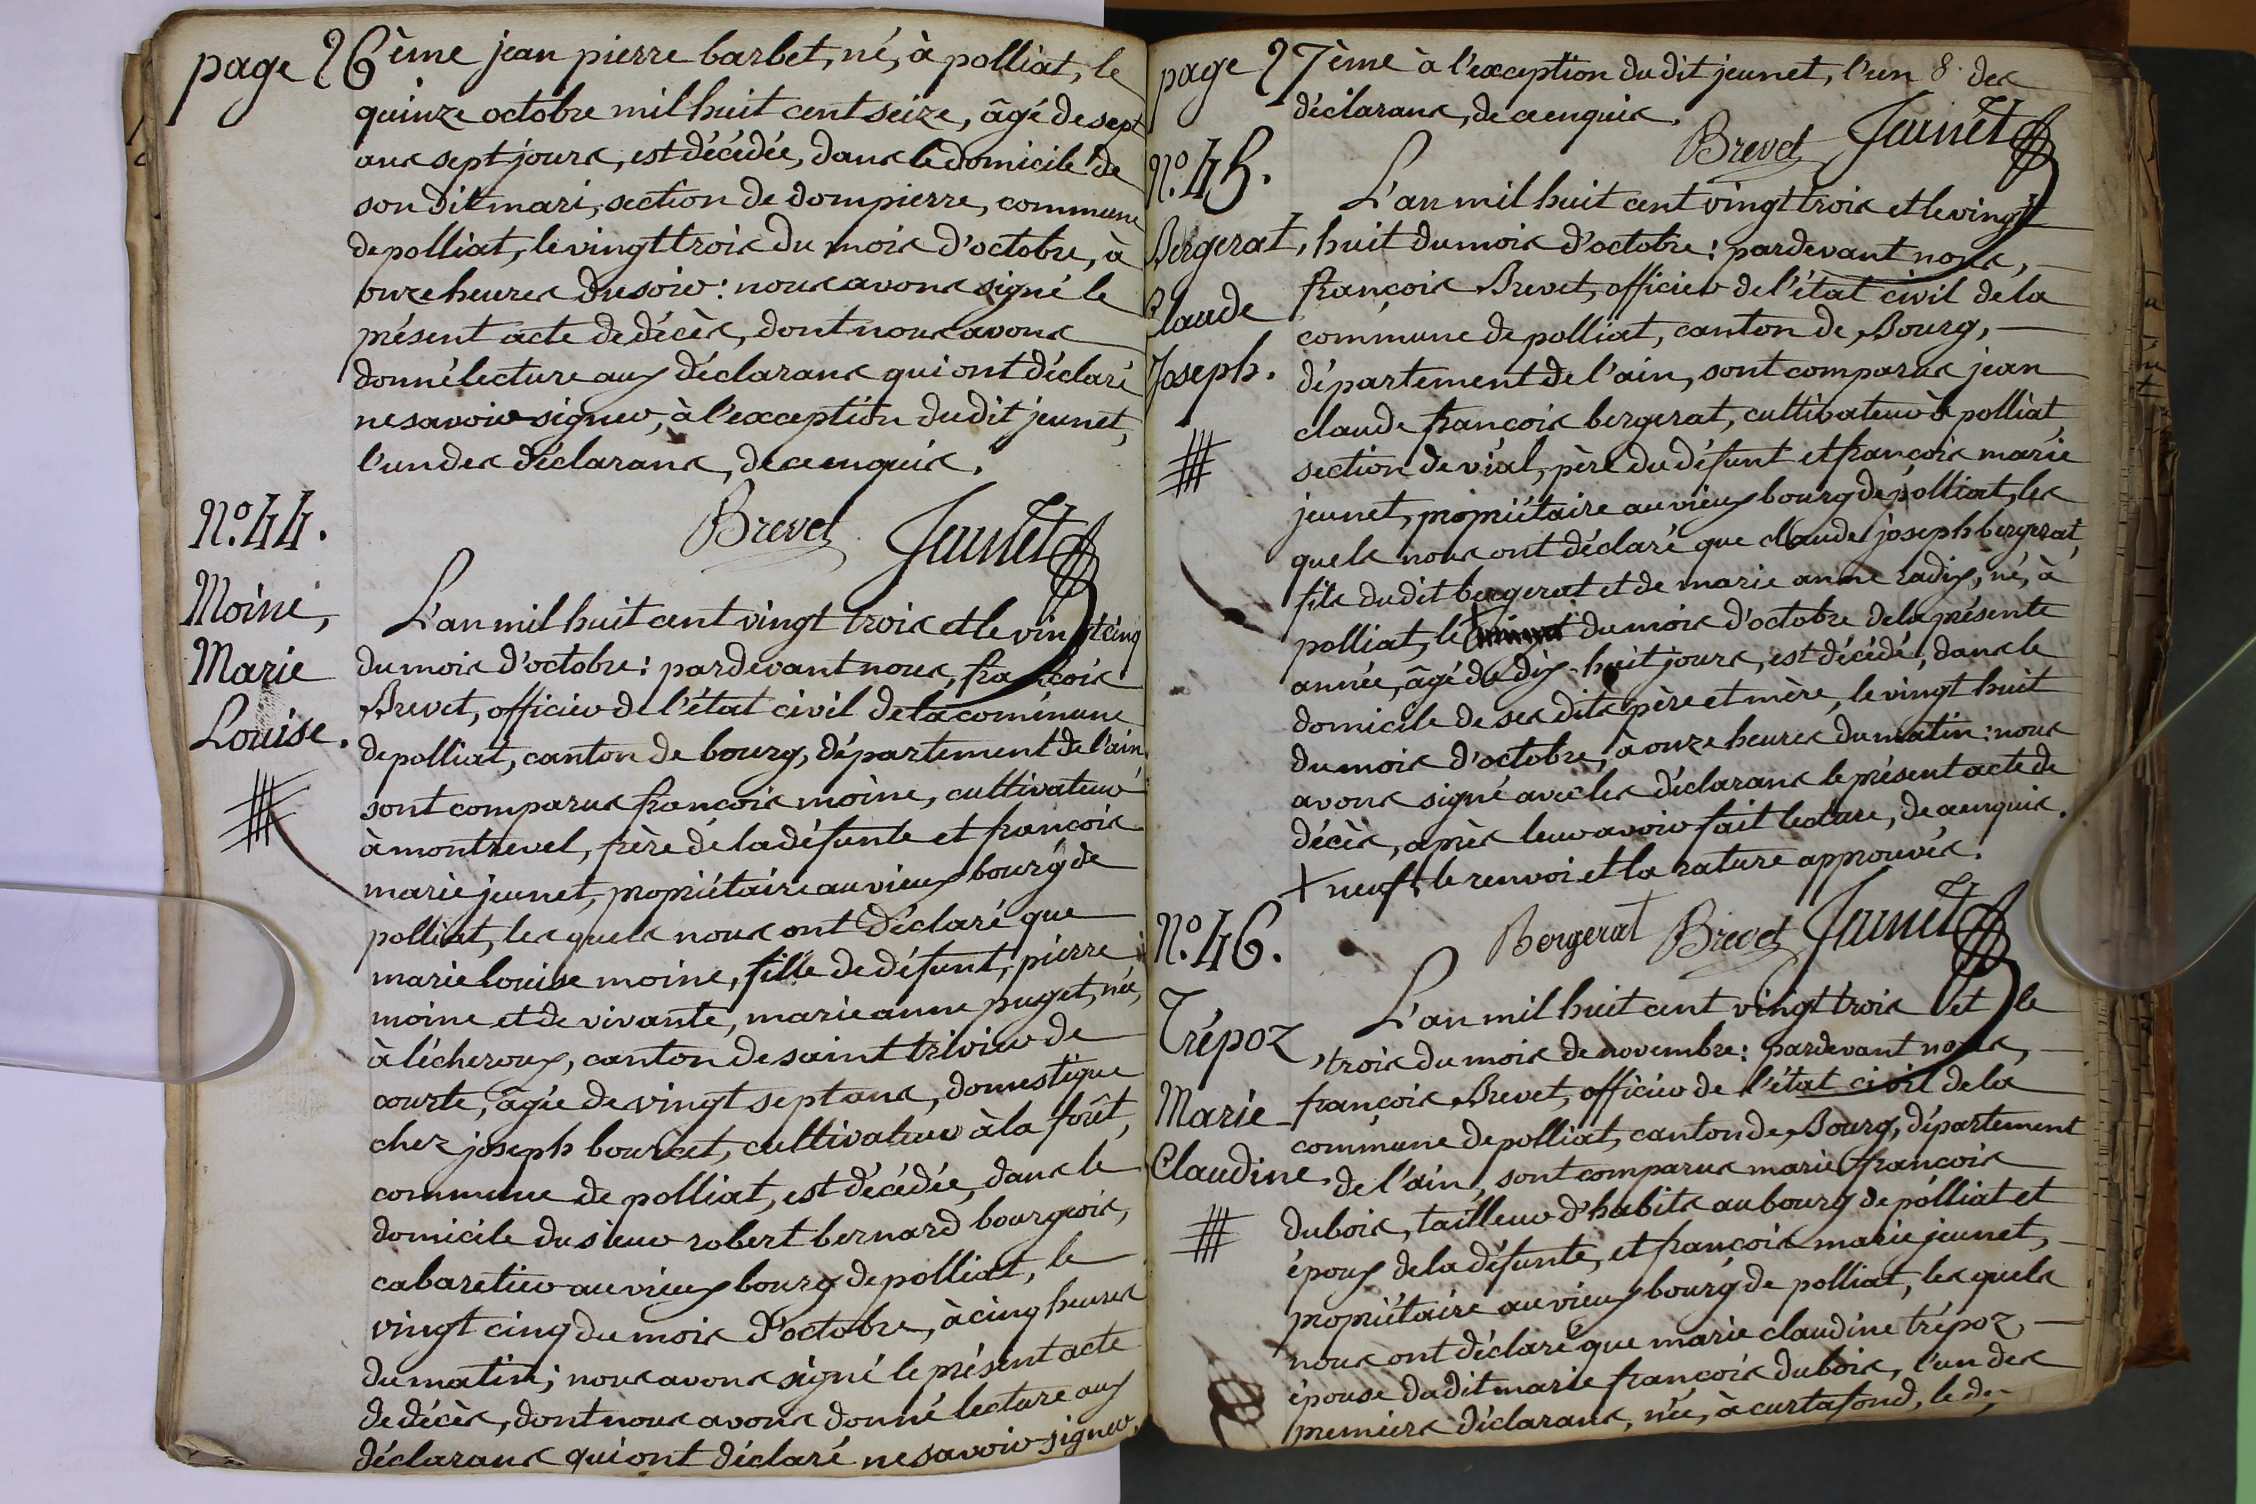 page 26ème jean pierre barbet, né, à polliat, le
quinze octobre mil huit cent seize, âgé de sept
ans sept jours, est décédée, dans le domicile de
son dit mari, section de dompierre, commune
de polliat, le vingt trois du mois d'octobre, à
onze heures du soir : nous avons signé le
présent acte de décès, dont nous avons
donné lecture aux déclarans qui ont déclaré
ne savoir signer, à l'exception du dit jeunet,
l'un des déclarans, de ce enquis.
Brevet Jeunet
N.º 44.
Moine,
Marie
Louise.
L'an mil huit cent vingt trois et le vingt cinq
du mois d'octobre : pardevant nous, françois
Brevet, officier de l'état civil de la commune
de polliat, canton de bourg, département de l'ain,
sont comparus françois moine, cultivateur
à montrevel, frère de la défunte et françois
marie jeunet, propriétaire au vieux bourg de
polliat, les quels nous ont déclaré que
marie louise moine, fille de défunt, pierre
moine et de vivante, marie anne puget, née,
à lécheroux, canton de saint trivier de
courte, âgée de vingt sept ans, domestique
chez joseph bourcet, cultivateur à la forêt,
commune de polliat, est décédée, dans le
domicile du sieur robert bernard bourgeois,
cabaretier au vieux bourg de polliat, le
vingt cinq du mois d'octobre, à cinq heures
du matin ; nous avons signé le présent acte
de décès, dont nous avons donné lecture aux
déclarans qui ont déclaré ne savoir signer,
page 27ème à l'exception du dit jeunet, l'un 8. des
déclarans, de ce enquis.
Brevet Jeunet
N.º 45.
Bergerat,
Claude
Joseph.
L'an mil huit cent vingt trois et le vingt
huit du mois d'octobre : pardevant nous,
françois Brevet, officier de l'état civil de la
commune de polliat, canton de Bourg,
département de l'ain, sont comparus jean
claude françois bergerat, cultivateur à polliat,
section de vial, père du défunt et françois marie
jeunet, propriétaire au vieux bourg de polliat, les
quels nous ont déclaré que claude joseph bergerat,
fils du dit bergerat et de marie anne radix, né, à
polliat, le + du mois d'octobre de la présente
année, âgé de dix-huit jours, est décédé, dans le
domicile de ses dits père et mère, le vingt huit
du mois d'octobre, à onze heures du matin : nous
avons signé avec les déclarans le présent acte de
décès, après leur avoir fait lecture, de ce enquis.
+ neuf, le renvoi et la rature approuvés.
Bergerat Brevet Jeunet
N.º 46.
Trépoz,
Marie
Claudine.
L'an mil huit cent vingt trois et le
trois du mois de novembre : pardevant nous,
françois Brevet, officier de l'état civil de la
commune de polliat, canton de Bourg, département
de l'ain, sont comparus marie françois
dubois, tailleur d'habits au bourg de polliat et
époux de la défunte, et françois marie jeunet,
propriétaire au vieux bourg de polliat, les quels
nous ont déclaré que marie claudine trépoz,
épouse du dit marie françois dubois, l'un des
premiers déclarans, née, à curtafond, le dix